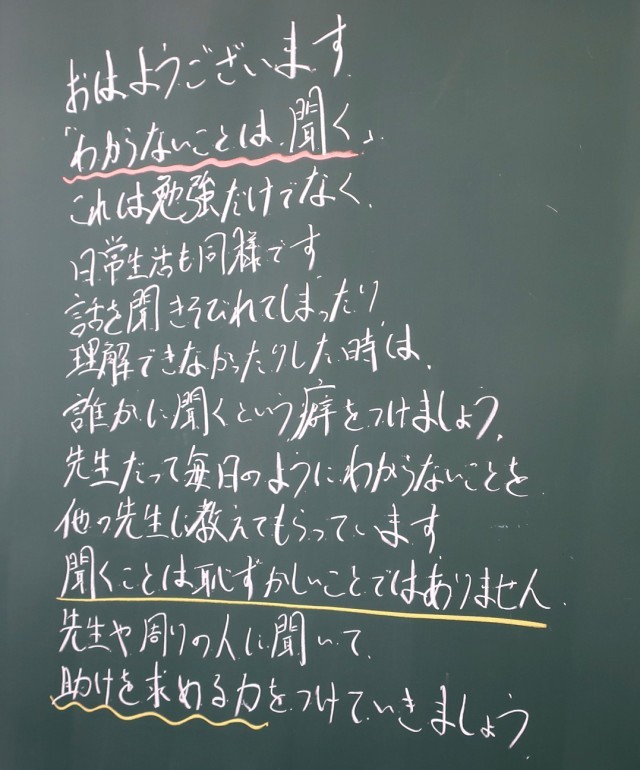 おはようございます
「わからないことは、聞く」
これは勉強だけでなく、
日常生活も同様です
話を聞きそびれてしまったり
理解できなかったりした時は、
誰かに聞くという癖をつけましょう。
先生だって毎日のようにわからないことを
他の先生に教えてもらっています
聞くことは恥ずかしいことではありません。
先生や周りの人に聞いて、
助けを求める力をつけていきましょう